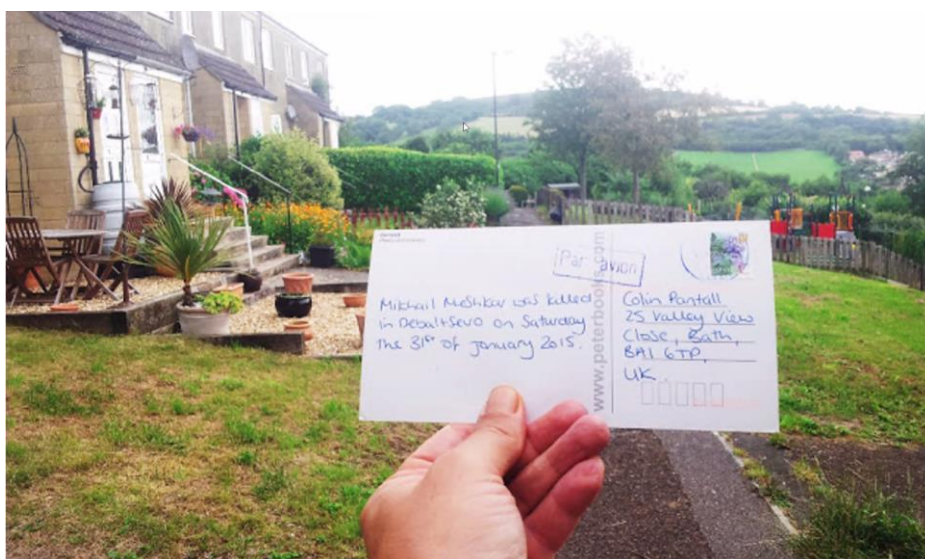 ¡Par avion
Mikhail Meshkov was killed
in Debaltsevo on Saturday
the 31st of January 2015.
www.peterbooks.com
Colin Pantall
25 Valley View
Close, Bath,
BA1 6TP,
UK